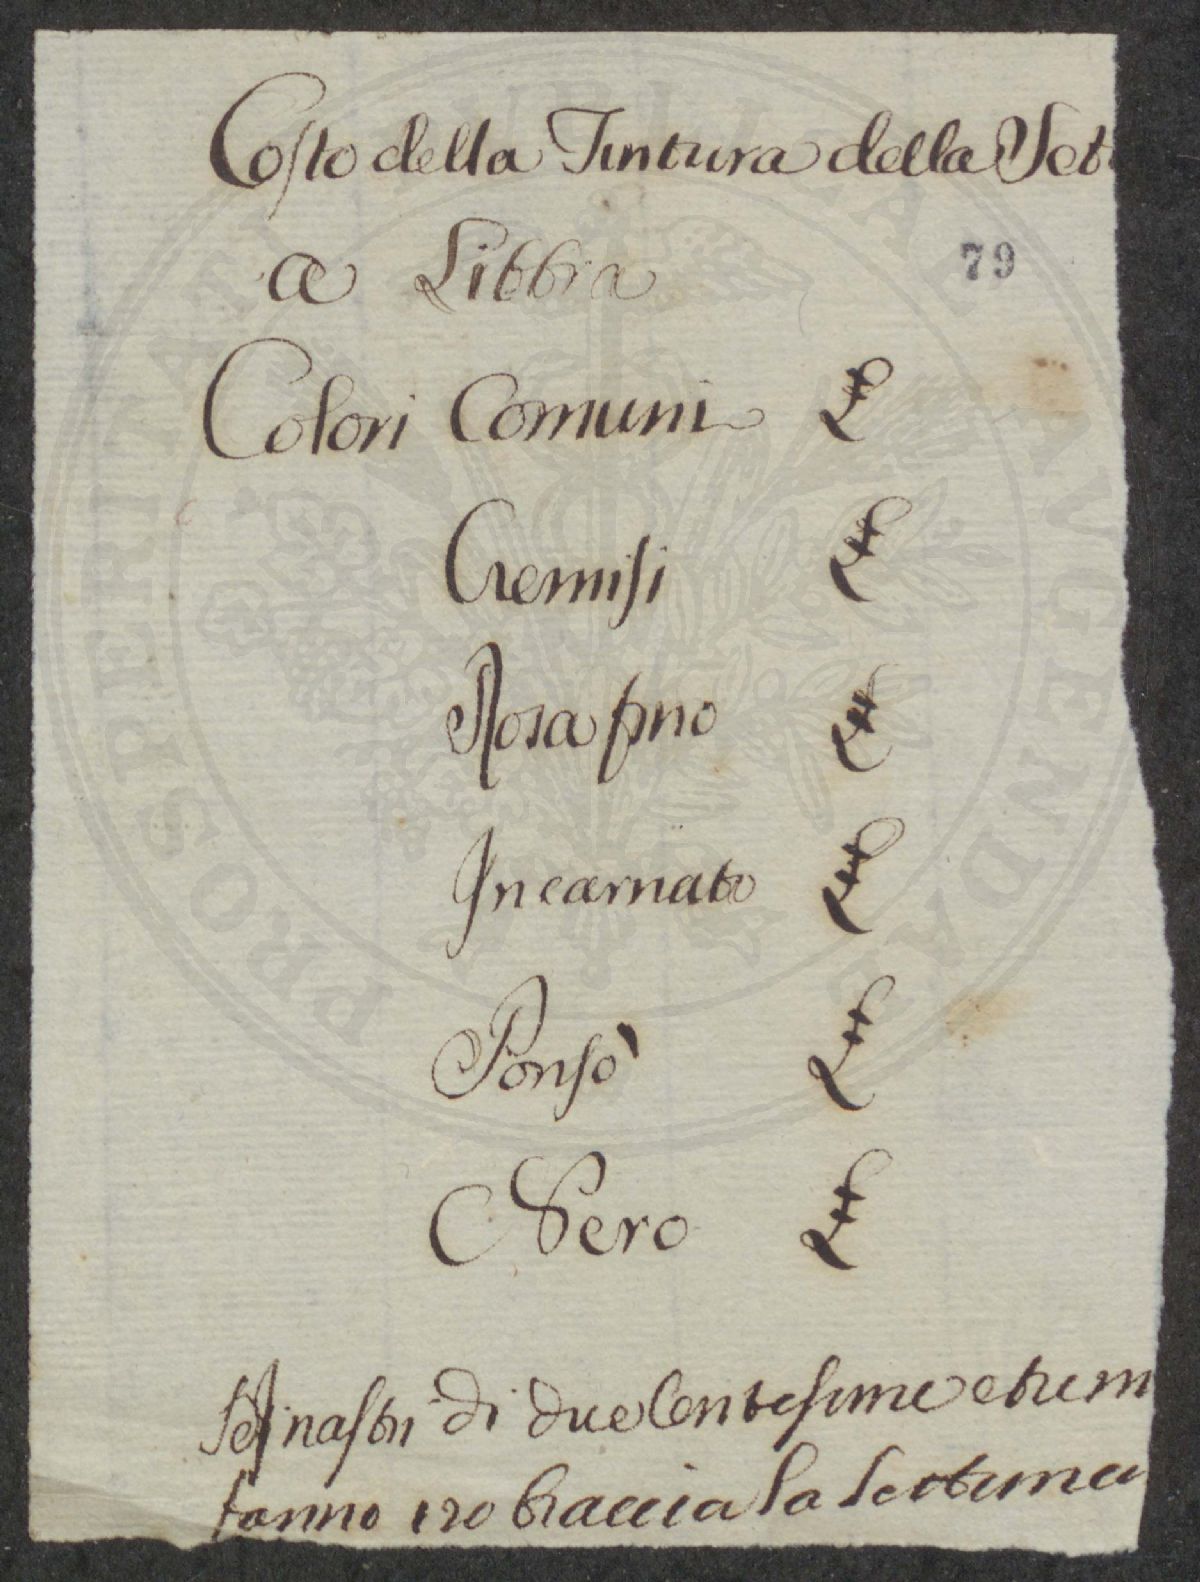 Costo della Tintura della Set
a Libbra
79
Colori Comuni £
Cremisi £
Rosa fino £
Incarnato £
Ponsò £
Nero £
nastri di due Centesime e tre m
fanno 120 braccia la settima
PROSPERITATI PUBLICAE AUGENDAE